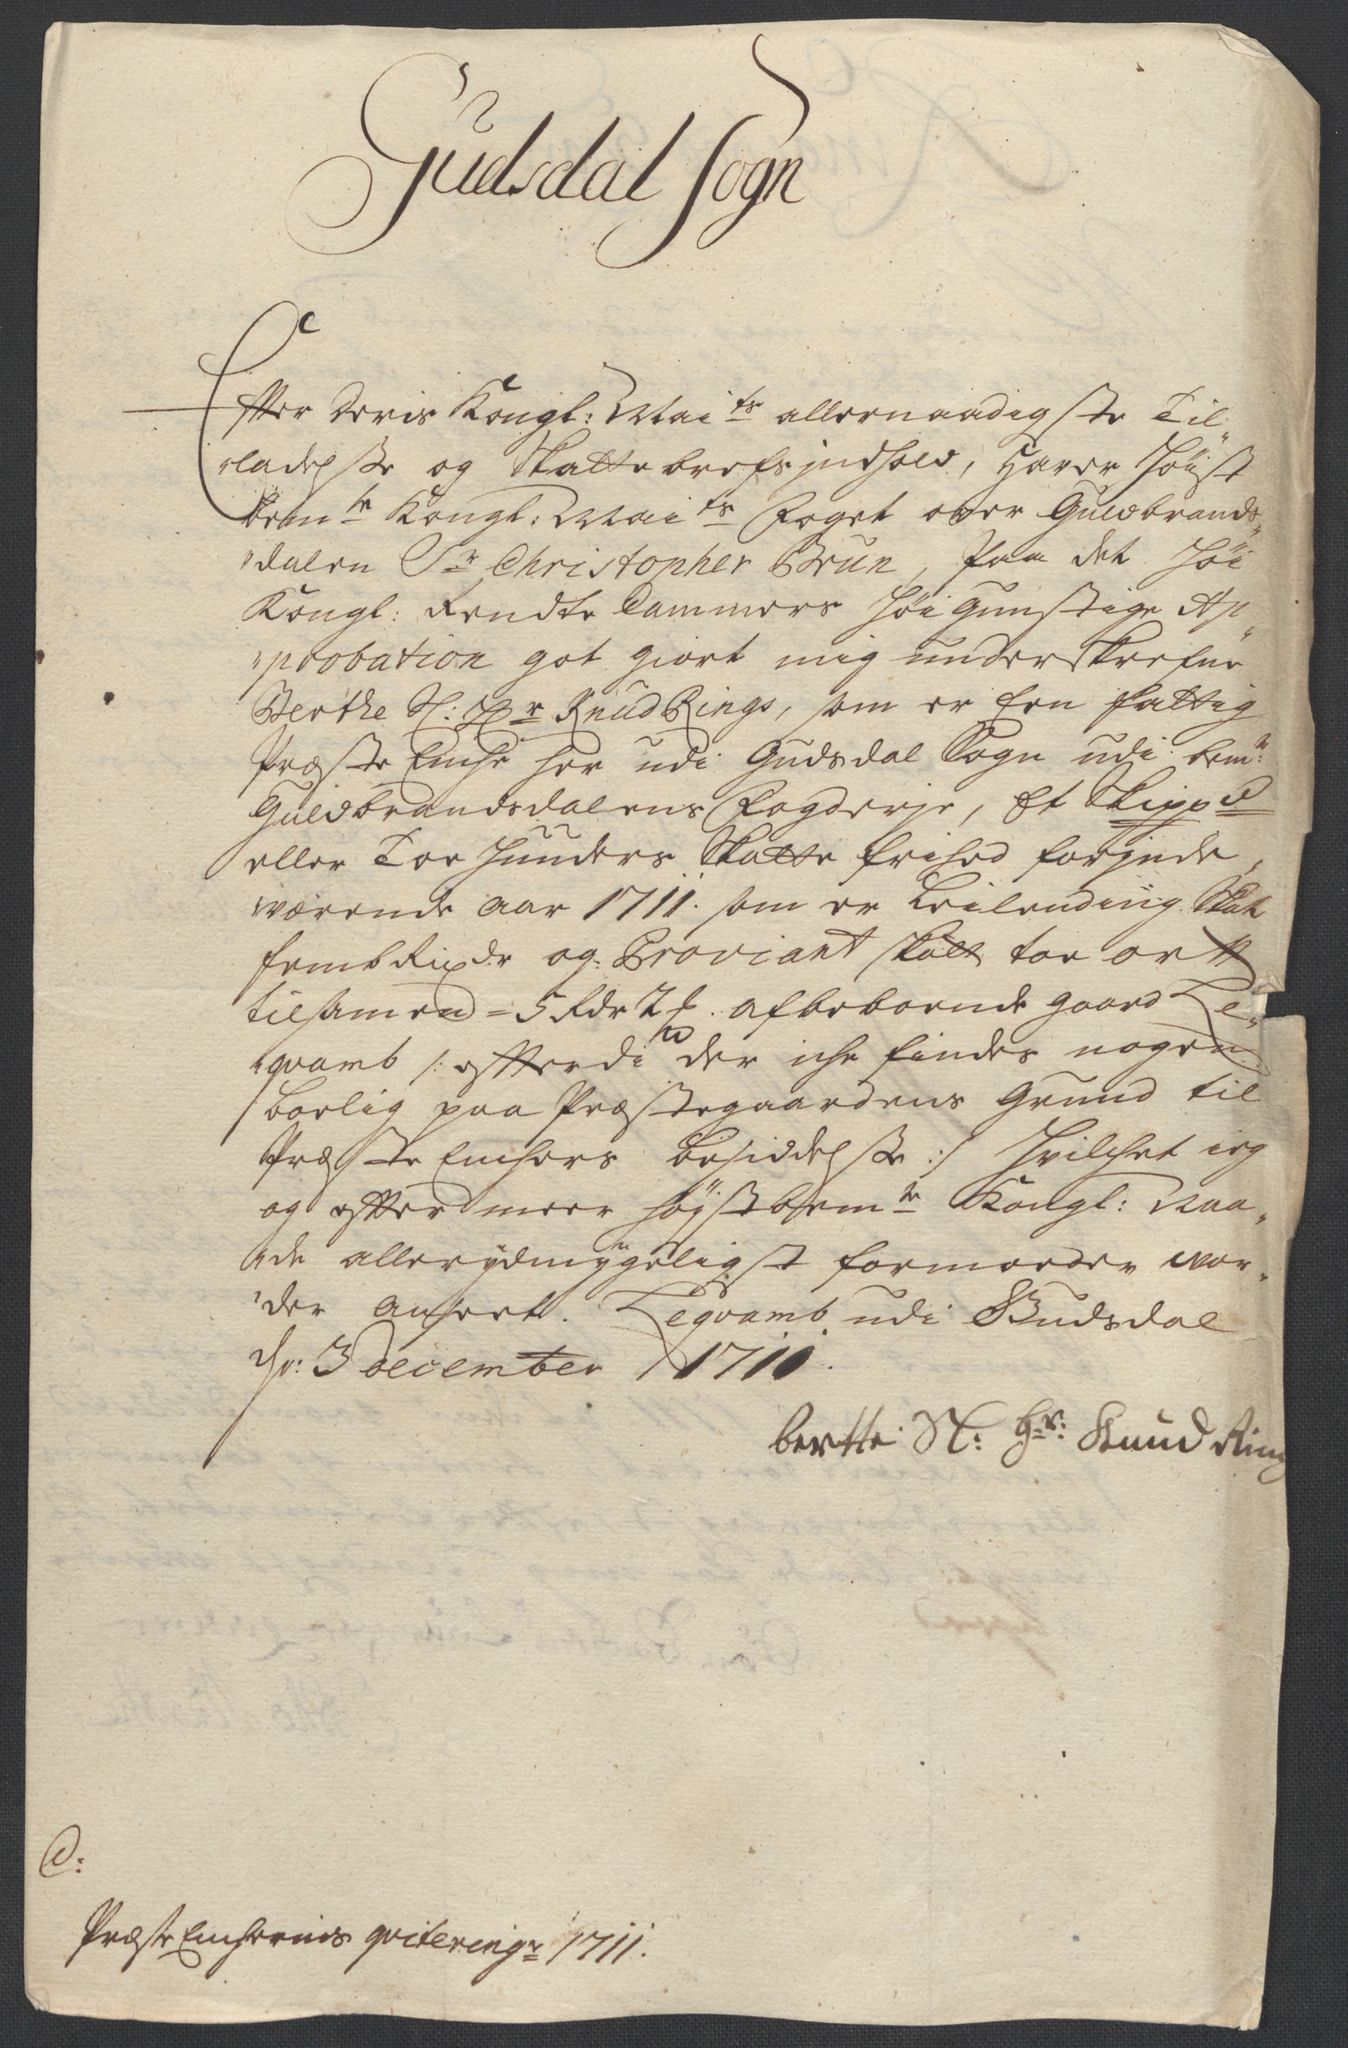 Gudsdal Sogn
Efter deris Kongl: Mai.ts allernaadigste Til
ladelse og Skattebrefs jndhold, Haver Høist
bem.te Kongl: Mai.ts Foget over Guldbrands-
dalen S.r Christopher Brun, paa det Høi
Kongl: Rendte Cammers Høigunstige Ap-
probation got giort mig underskrefne
Berthe Sl: H.r Knud Rings, som er Een fattig
Præste Enche her udi Gudsdal Sogn udi bem.te
Guldbrandsdalens Fogderje, Et Skippd
eller Toe Hunders Skatte frihed for jnde
værende Aar 1711. som er Leilending Skat
femb Rixdr og Proviant Skatt toe ort
tilsamen = 5 Rdr 2 ort. af beboende gaard Le-
qvamb /: efterdi der iche findes nogen
boelig paa Præstegaardens Grund til
Præste Enchers besiddelse :/ Hvilchet ieg
og efter meer høystbem.te Kongl: Naa-
de allerydmygeligst formoder vor-
der anseet. Leqvamb udi Gudsdal
d: 3 December 1711.
bertte Sl: Hr: Knud Ring
D:
Præste Enchernis qvitering.r 1711.